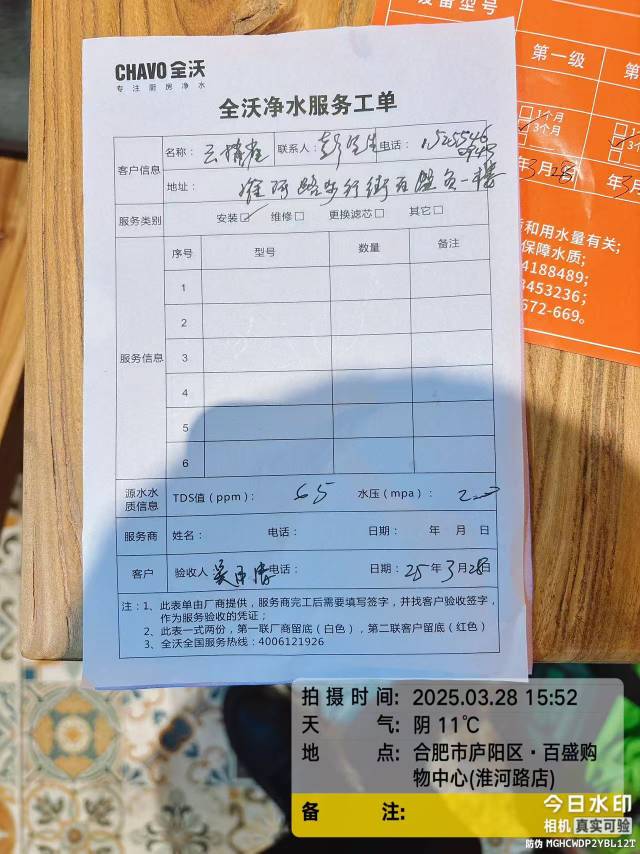 设备型号
第一级
1个月
3个月
3月28
年3月
1
3个
质和用水量有关;
保障水质;
4188489;
3453236;
672-669。
CHAVO 全沃
专注厨房净水
全沃净水服务工单
客户信息
名称: 云情雀 联系人: 彭先生 电话:
地址: 淮河路步行街百盛负一楼
服务类别 安装☑ 维修□ 更换滤芯□ 其它□
服务信息
序号 型号 数量 备注
1
2
3
4
5
6
源水水质信息
TDS值(ppm): 65 水压(mpa):
服务商 姓名: 电话: 日期: 年 月 日
客户 验收人: 吴 电话: 日期: 25年3月28日
注:1、此表单由厂商提供,服务商完工后需要填写签字,并找客户验收签字,
作为服务验收的凭证;
2、此表一式两份,第一联厂商留底(白色),第二联客户留底(红色)
3、全沃全国服务热线:4006121926
拍摄时间: 2025.03.28 15:52
天气: 阴 11℃
地点: 合肥市庐阳区·百盛购
物中心(淮河路店)
备注:
今日水印
相机 真实可验
防伪 MGHCWDP2YBL12T